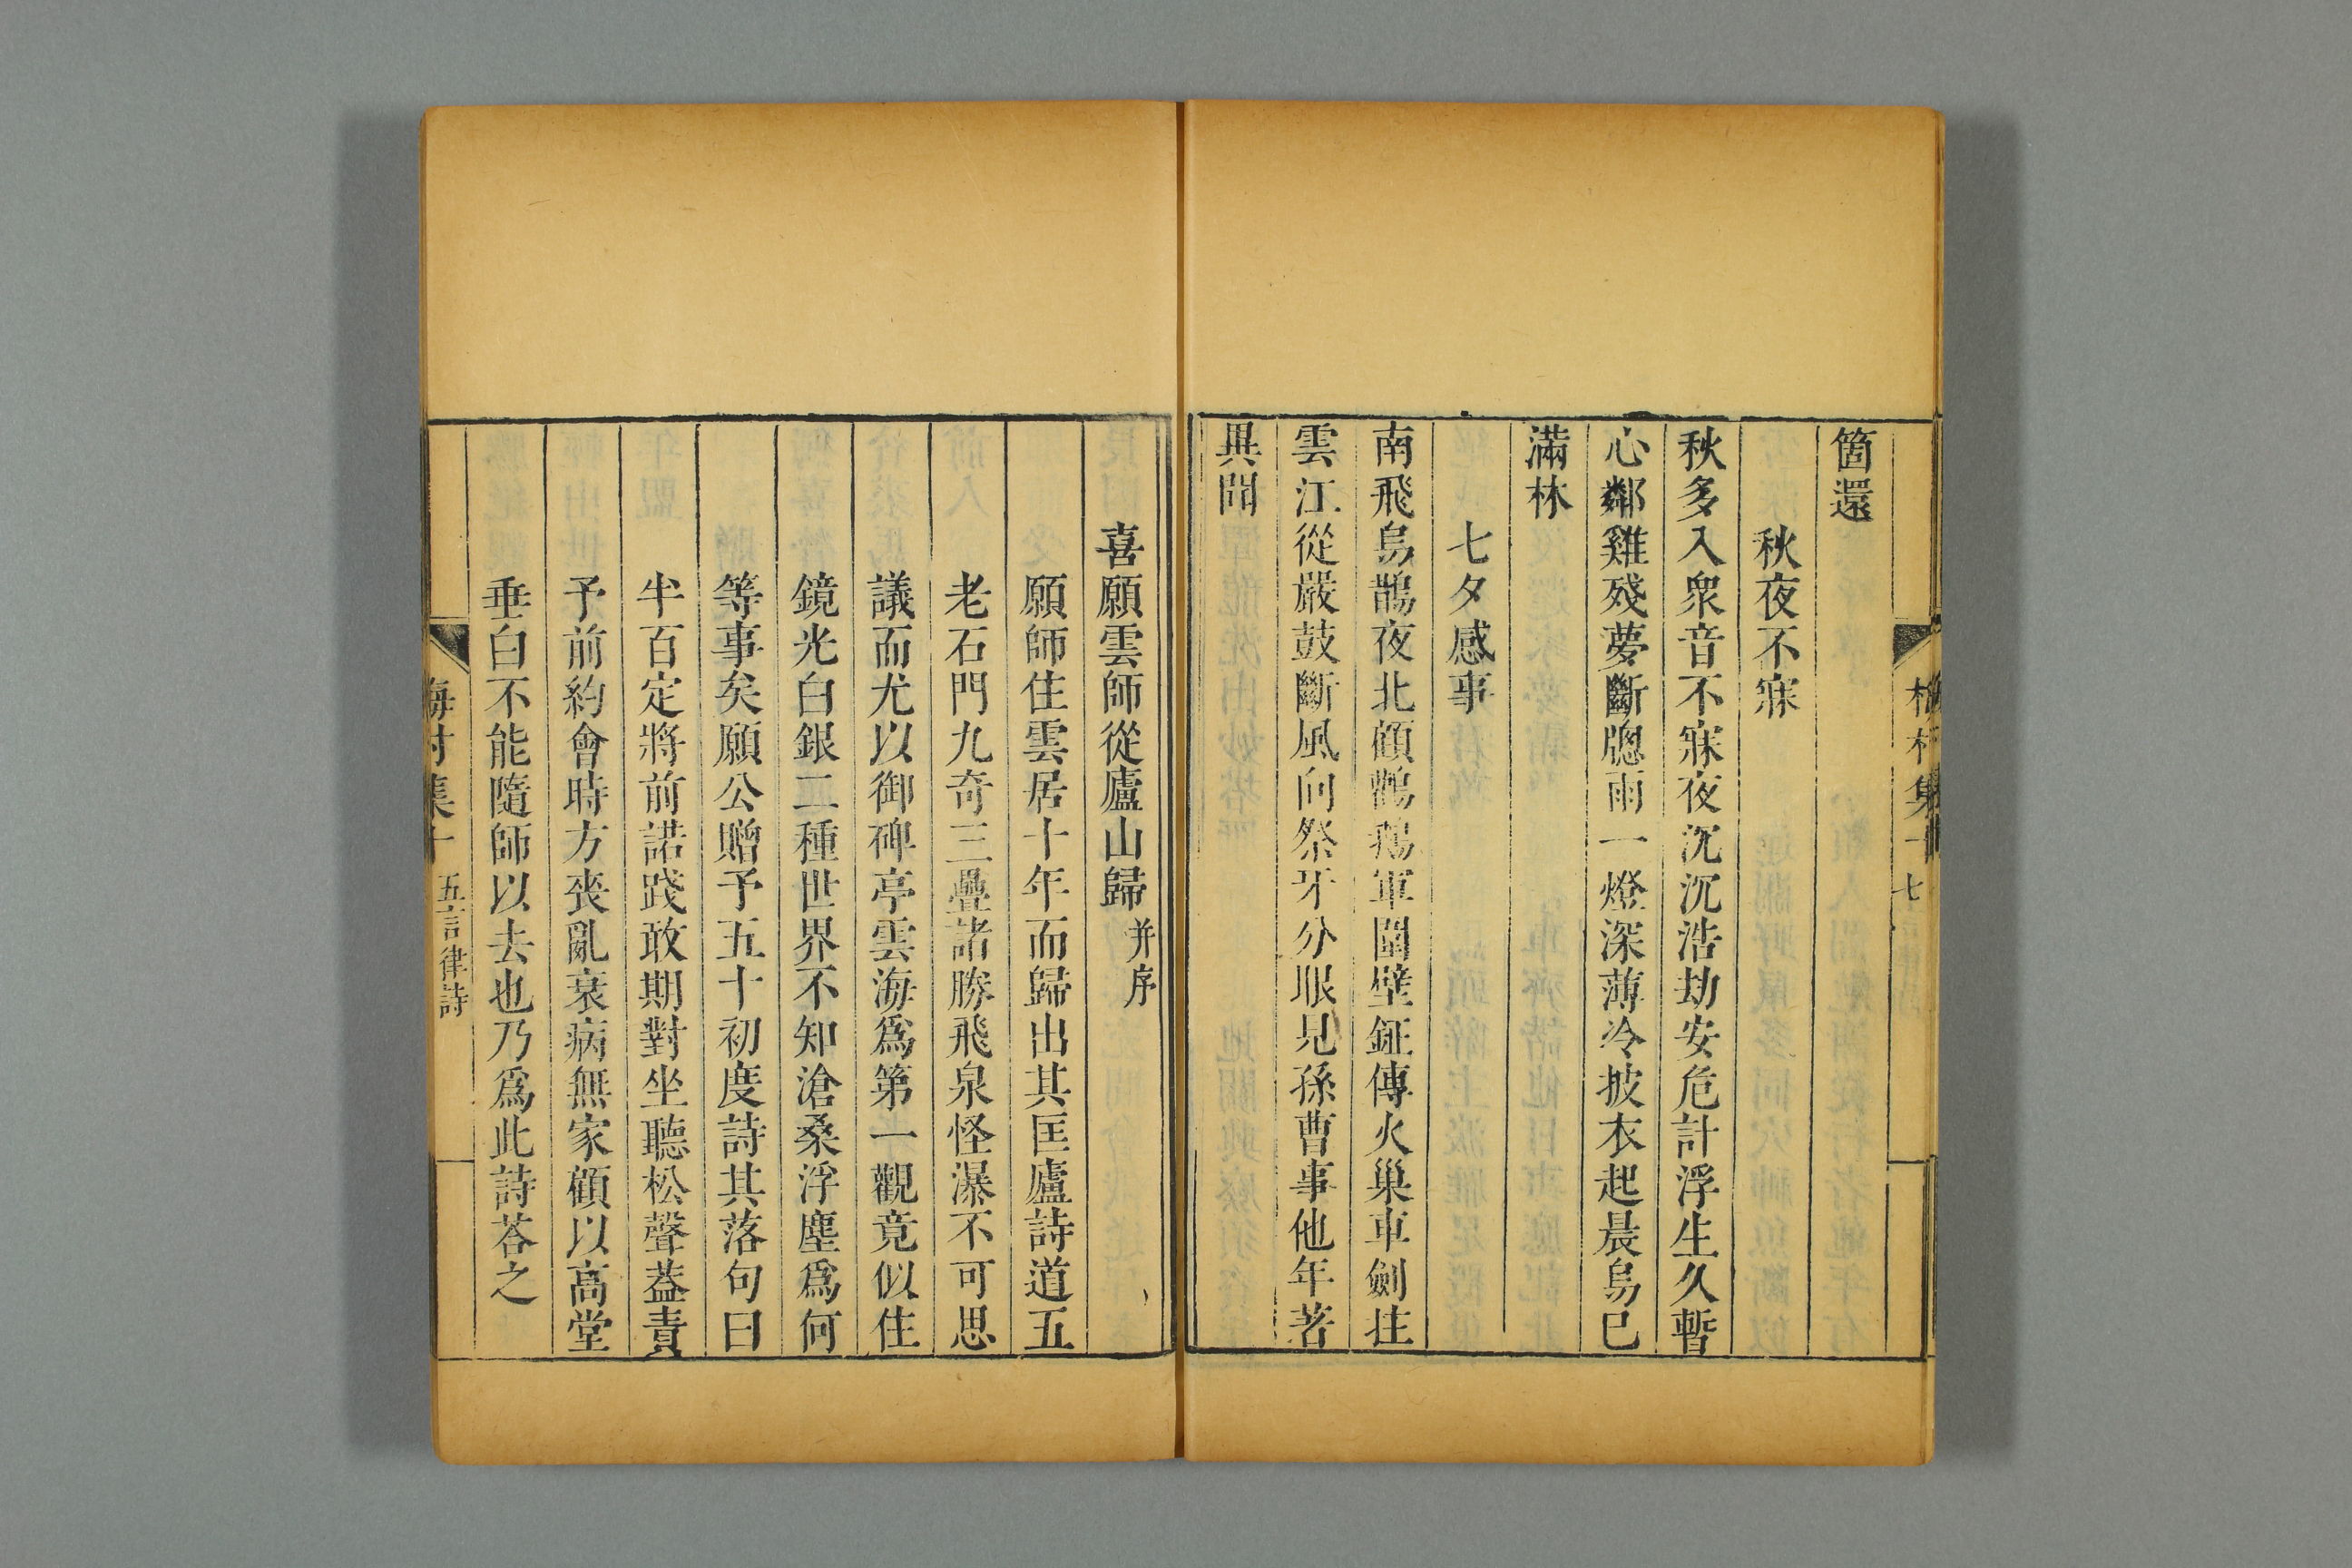 箇還
秋夜不寐
秋多入衆音不寐夜沉沉浩劫安危計浮生久暫
心鄰雞殘夢斷牕雨一燈深薄冷披衣起晨烏已
滿林
七夕感事
南飛烏鵲夜北顧鸛鵝軍圍壁鉦傳火巢車劍拄
雲江從嚴鼓斷風向祭牙分眼見孫曹事他年著
異聞
喜願雲師從廬山歸并序
願師住雲居十年而歸出其匡廬詩道五
老石門九奇三疊諸勝飛泉怪瀑不可思
議而尤以御碑亭雲海爲第一觀竟似住
鏡光白銀二種世界不知滄桑浮塵爲何
等事矣願公贈予五十初度詩其落句曰
半百定將前諾踐敢期對坐聽松聲蓋責
予前約會時方喪亂衰病無家顧以高堂
垂白不能隨師以去也乃爲此詩荅之
梅村集十 五言律詩